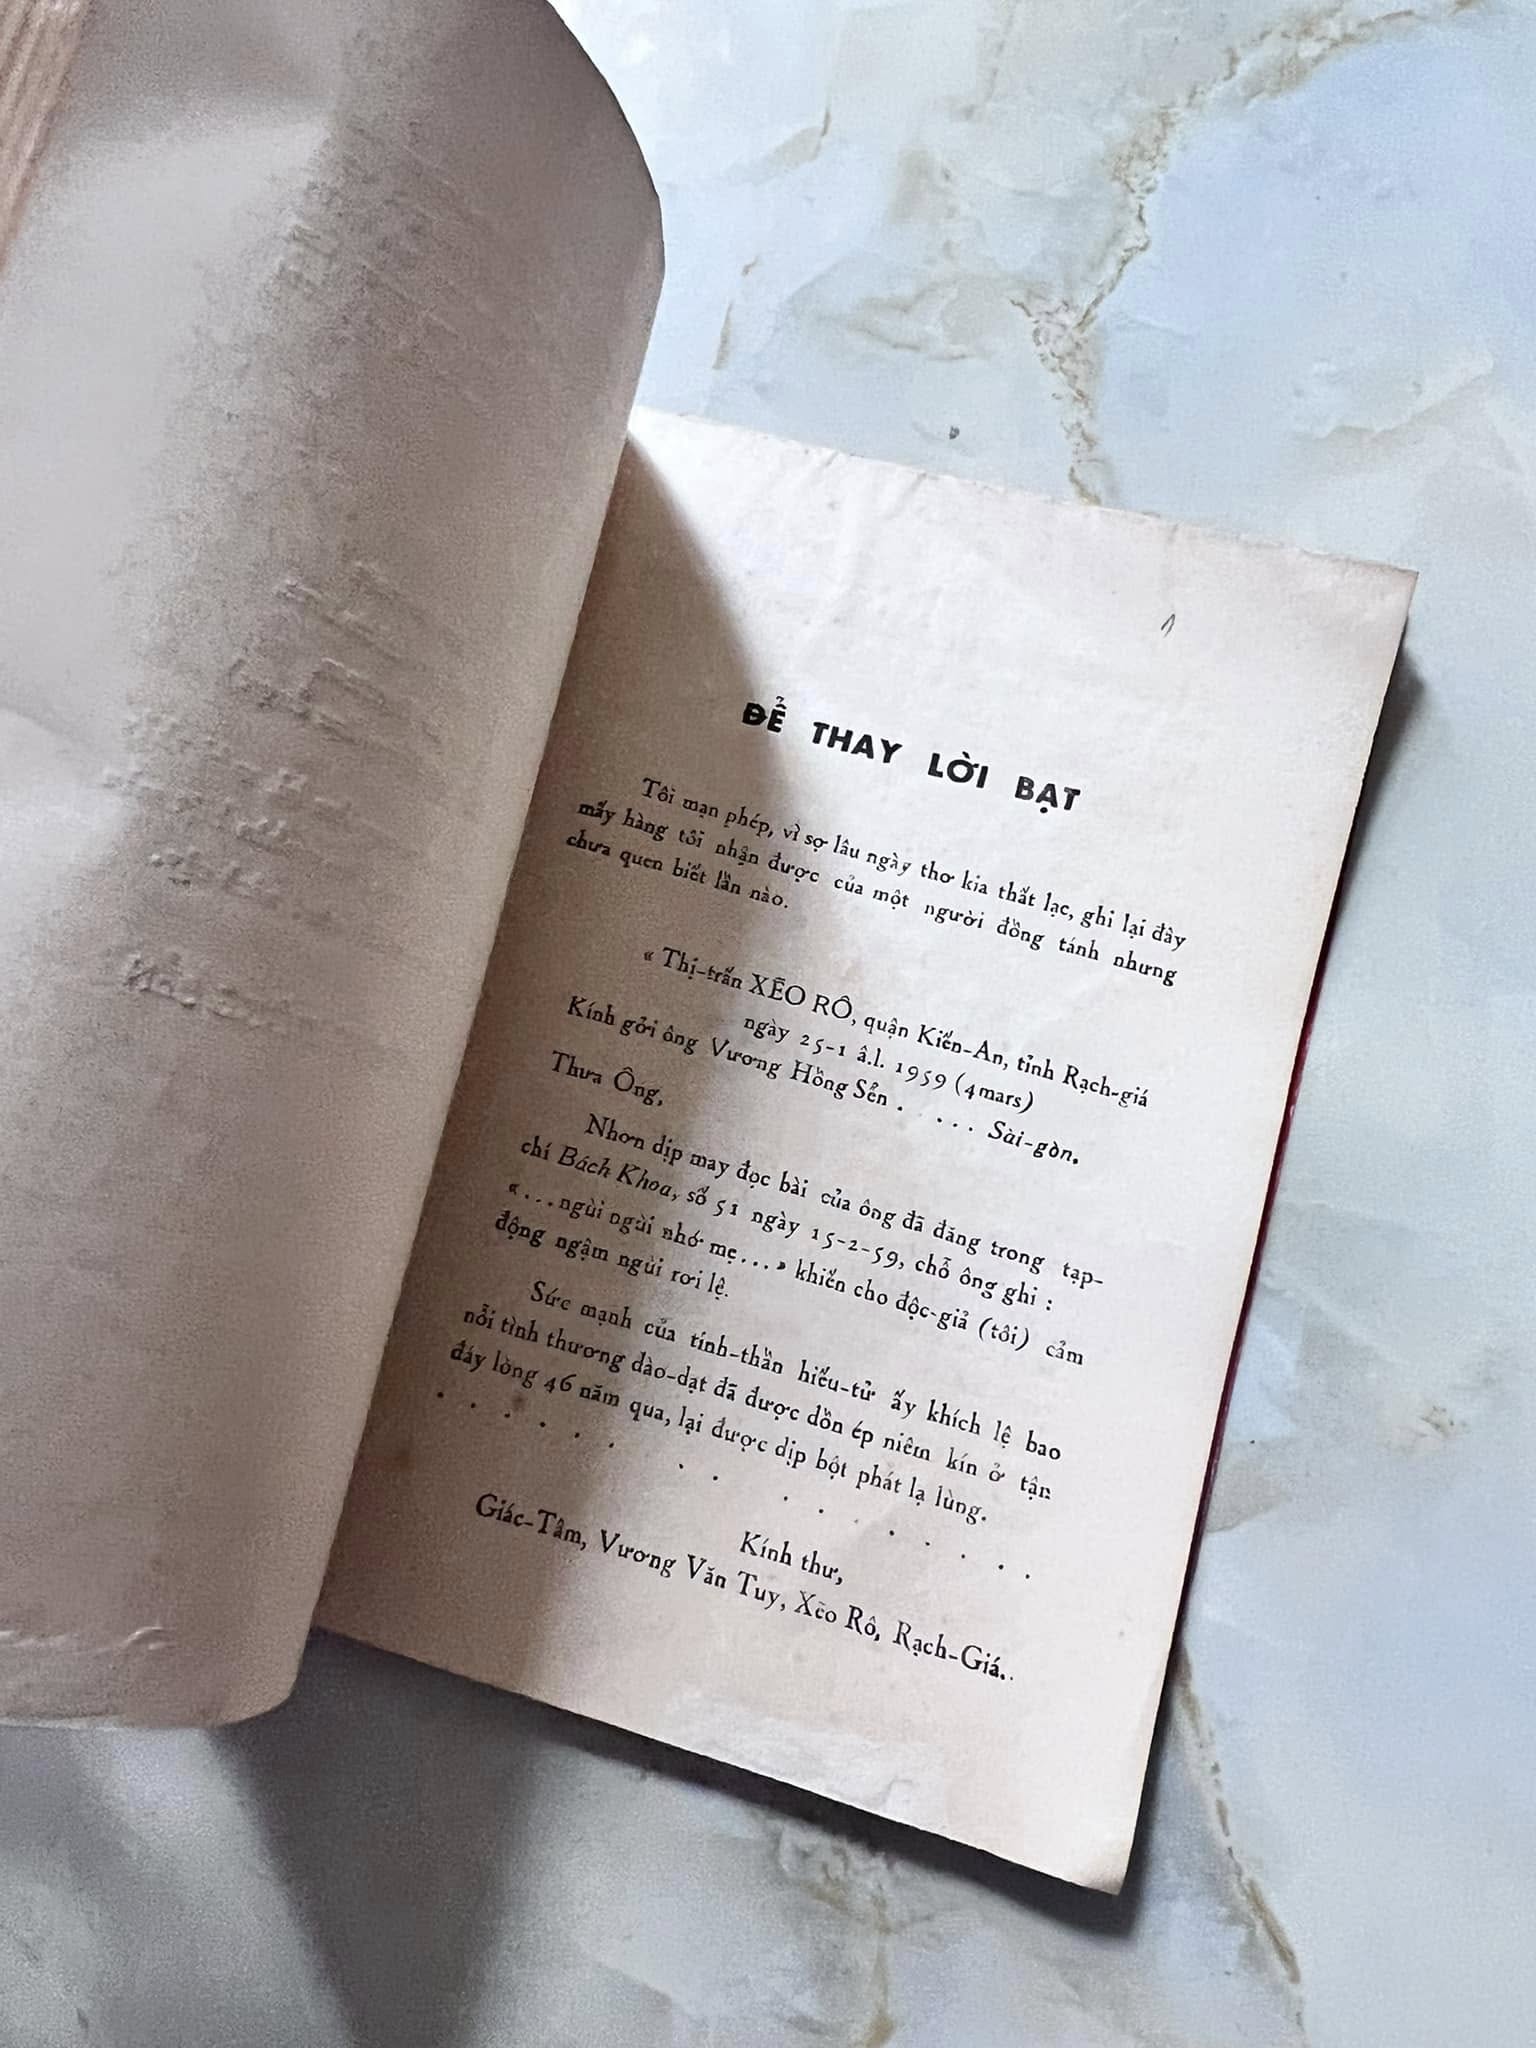 ĐỂ THAY LỜI BẠT
Tôi mạn phép, vì sợ lâu ngày thơ kia thất lạc, ghi lại đây
mấy hàng tôi nhận được của một người đồng tánh nhưng
chưa quen biết lần nào.
« Thị-trấn XẺO RÔ, quận Kiến-An, tỉnh Rạch-giá
ngày 25-1 â.l. 1959 (4mars)
Kính gởi ông Vương Hồng Sển . . . . Sài-gòn.
Thưa Ông,
Nhơn dịp may đọc bài của ông đã đăng trong tạp-
chí Bách Khoa, số 51 ngày 15-2-59, chỗ ông ghi :
«...ngùi ngùi nhớ mẹ...» khiến cho độc-giả (tôi) cảm
động ngậm ngùi rơi lệ.
Sức mạnh của tinh-thần hiếu-tử ấy khích lệ bao
nỗi tình thương dào-dạt đã được dồn ép niêm kín ở tận
đáy lòng 46 năm qua, lại được dịp bột phát lạ lùng.
. . . . . . . . . . . . . . . .
Kính thư,
Giác-Tâm, Vương Văn Tuy, Xẻo Rô, Rạch-Giá..